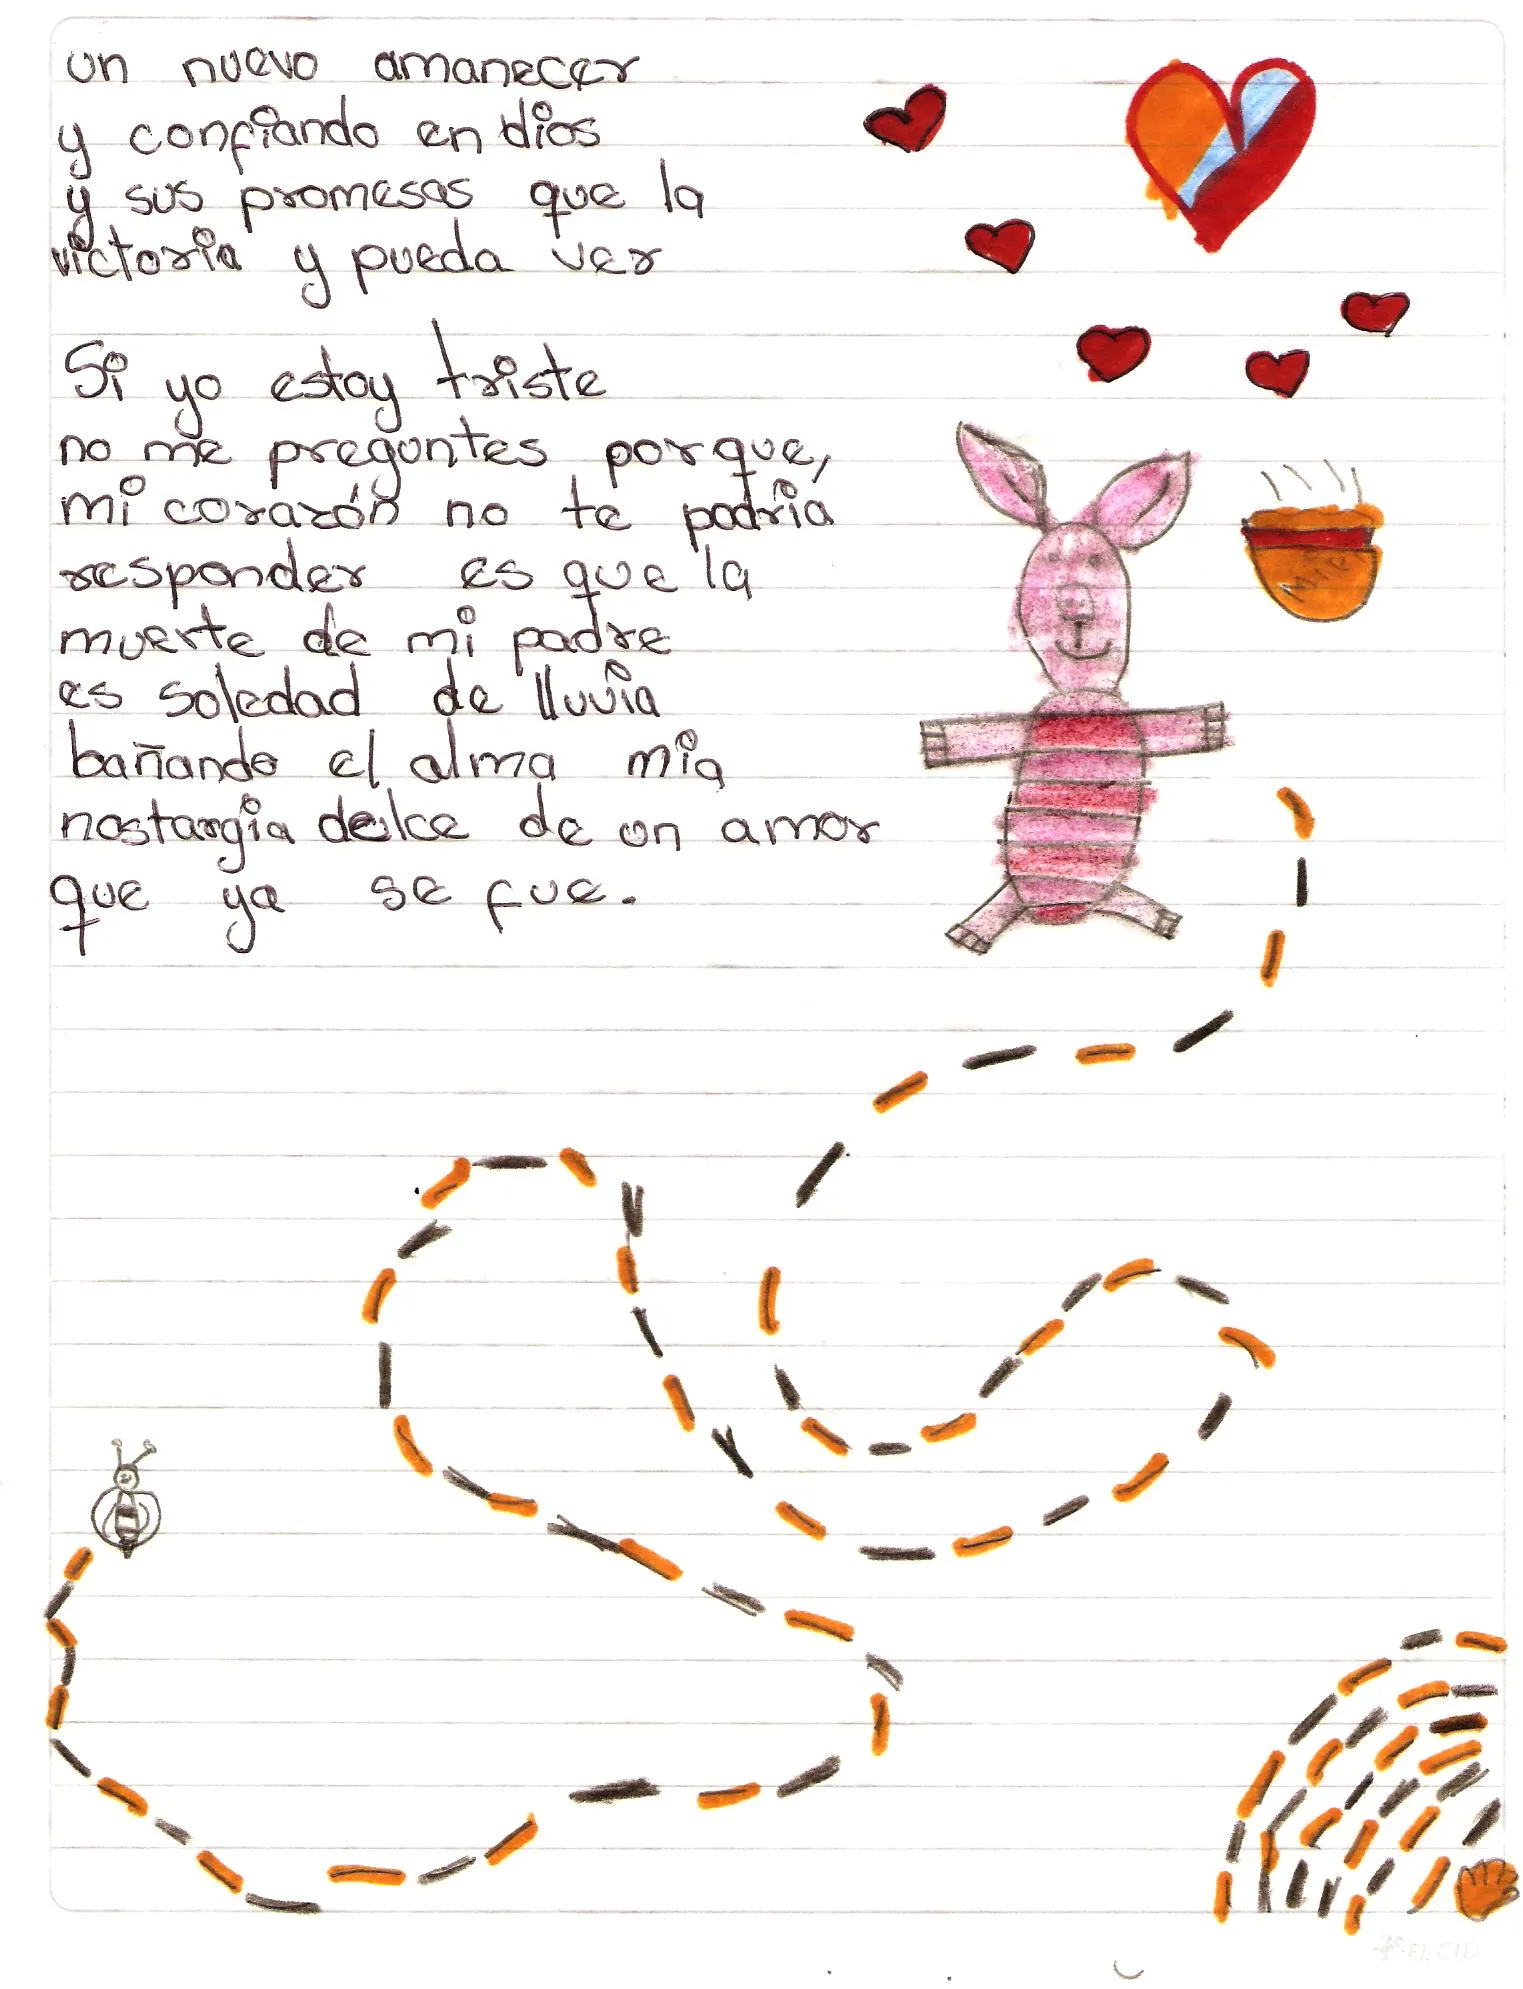 un nuevo amanecer
y confiando en dios
y sus promesas que la
victoria y pueda ver
Si yo estoy triste
no me preguntes porque,
mi corazón no te podria
responder es que la
muerte de mi padre
es soledad de lluvia
bañando el alma mia
nostargia delce de un amor
que ya se fue.
Miel
EL CID